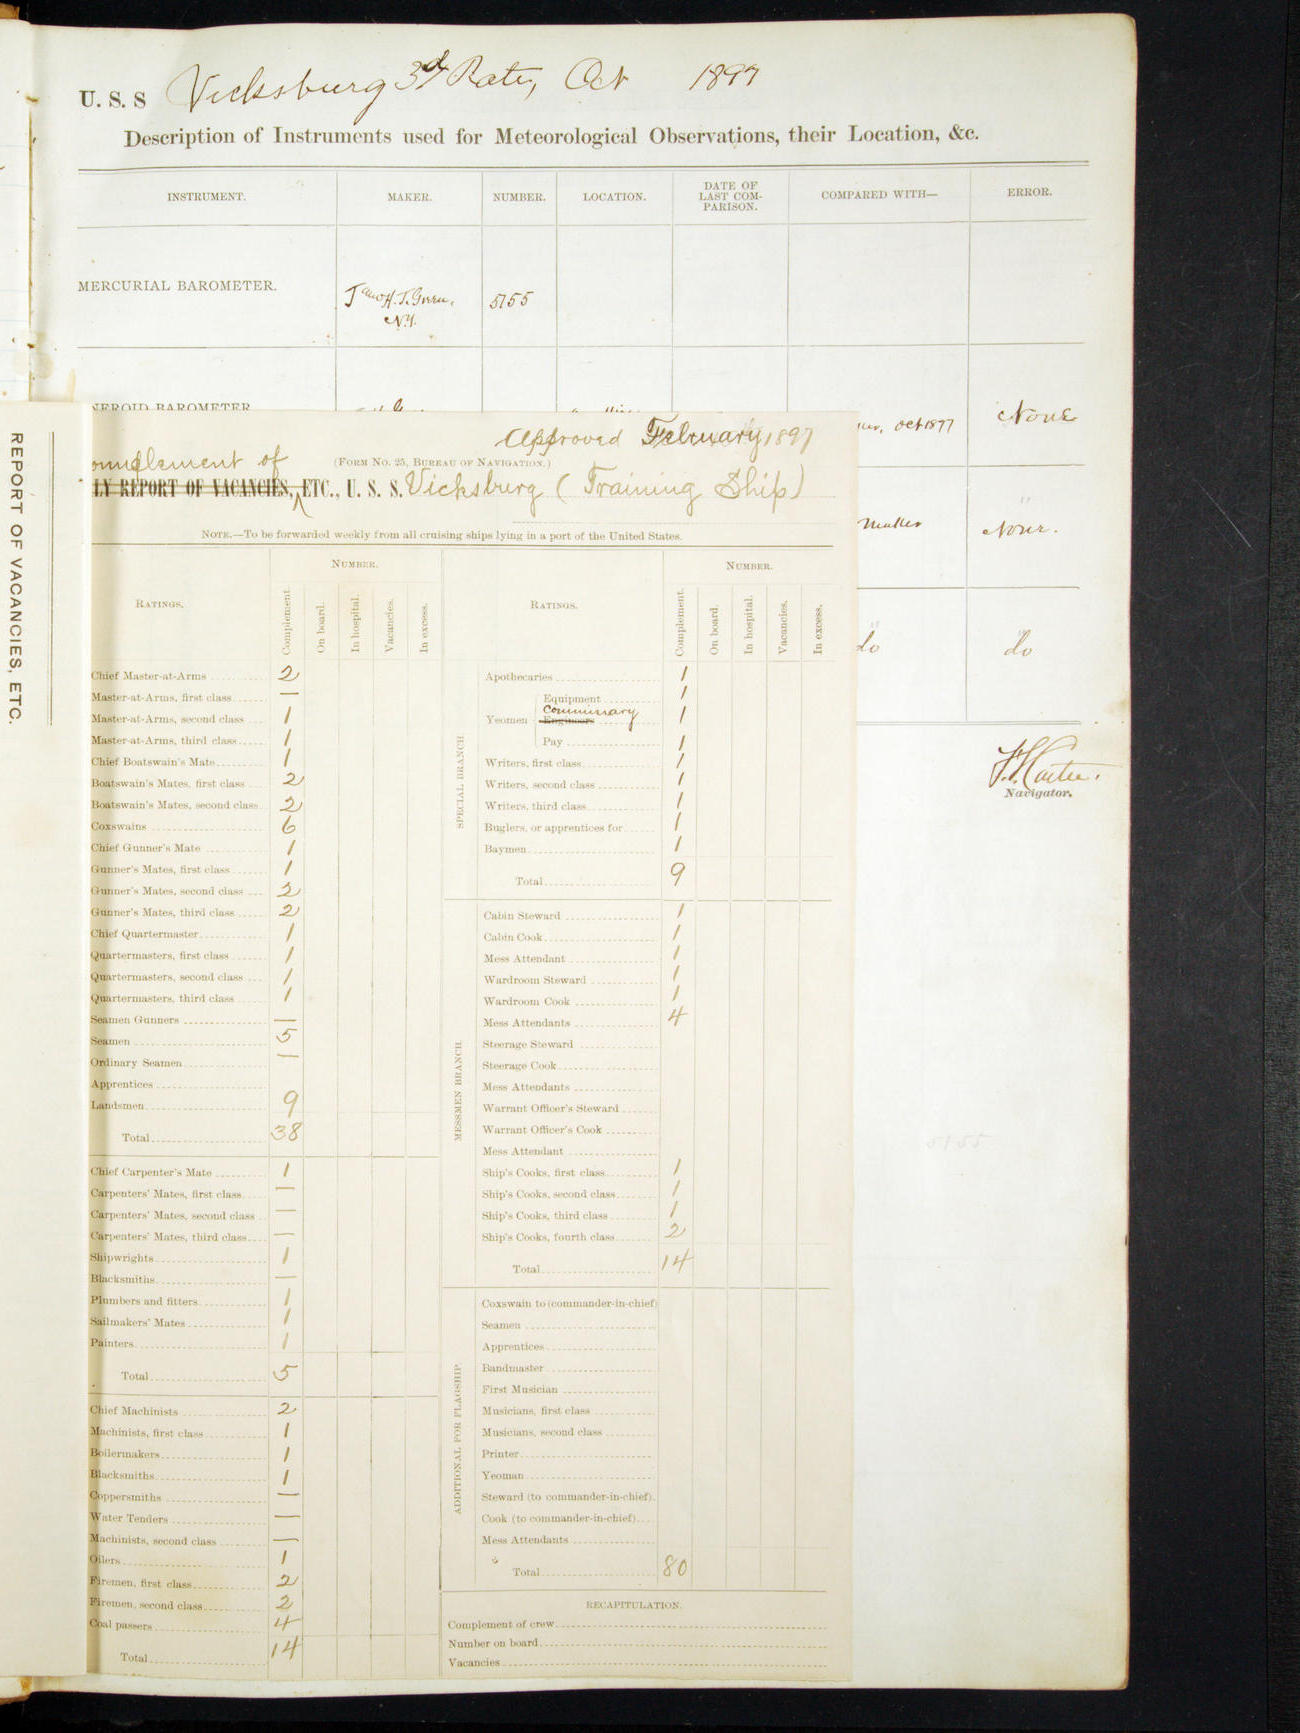 U. S. S Vicksburg 3d Rate, Oct 1897
Description of Instruments used for Meteorological Observations, their Location, &c.
INSTRUMENT. MAKER. NUMBER. LOCATION. DATE OF LAST COM-PARISON. COMPARED WITH— ERROR.
MERCURIAL BAROMETER. H. J. Green, 5155
N.Y.
NEROID BAROMETER
Oct 1897 None
None.
do do
Navigator.
REPORT OF VACANCIES, ETC.
Approved February 1897
omplement of (FORM NO. 25, BUREAU OF NAVIGATION.)
LY REPORT OF VACANCIES, ETC., U. S. S. Vicksburg (Training Ship)
NOTE.—To be forwarded weekly from all cruising ships lying in a port of the United States.
RATINGS. NUMBER.
Complement. On board. In hospital. Vacancies. In excess.
Chief Master-at-Arms 2
Master-at-Arms, first class —
Master-at-Arms, second class 1
Master-at-Arms, third class 1
Chief Boatswain's Mate 1
Boatswain's Mates, first class 2
Boatswain's Mates, second class 2
Coxswains 6
Chief Gunner's Mate 1
Gunner's Mates, first class 1
Gunner's Mates, second class 2
Gunner's Mates, third class 2
Chief Quartermaster 1
Quartermasters, first class 1
Quartermasters, second class 1
Quartermasters, third class 1
Seamen Gunners —
Seamen 5
Ordinary Seamen —
Apprentices
Landsmen 9
Total 38
Chief Carpenter's Mate 1
Carpenters' Mates, first class —
Carpenters' Mates, second class —
Carpenters' Mates, third class —
Shipwrights 1
Blacksmiths —
Plumbers and fitters 1
Sailmakers' Mates 1
Painters 1
Total 5
Chief Machinists 2
Machinists, first class 1
Boilermakers 1
Blacksmiths 1
Coppersmiths —
Water Tenders —
Machinists, second class —
Oilers 1
Firemen, first class 2
Firemen, second class 2
Coal passers 4
Total 14
RATINGS. NUMBER.
Complement. On board. In hospital. Vacancies. In excess.
SPECIAL BRANCH
Apothecaries 1
Equipment 1
Commissary
Yeomen Engineers 1
Pay 1
Writers, first class 1
Writers, second class 1
Writers, third class 1
Buglers, or apprentices for 1
Baymen 1
Total 9
MESSMEN BRANCH
Cabin Steward 1
Cabin Cook 1
Mess Attendant 1
Wardroom Steward 1
Wardroom Cook 1
Mess Attendants 4
Steerage Steward
Steerage Cook
Mess Attendants
Warrant Officer's Steward
Warrant Officer's Cook
Mess Attendant
Ship's Cooks, first class 1
Ship's Cooks, second class 1
Ship's Cooks, third class 1
Ship's Cooks, fourth class 2
Total 14
ADDITIONAL FOR FLAGSHIP
Coxswain to (commander-in-chief)
Seamen
Apprentices
Bandmaster
First Musician
Musicians, first class
Musicians, second class
Printer
Yeoman
Steward (to commander-in-chief)
Cook (to commander-in-chief)
Mess Attendants
Total 80
RECAPITULATION.
Complement of crew
Number on board
Vacancies